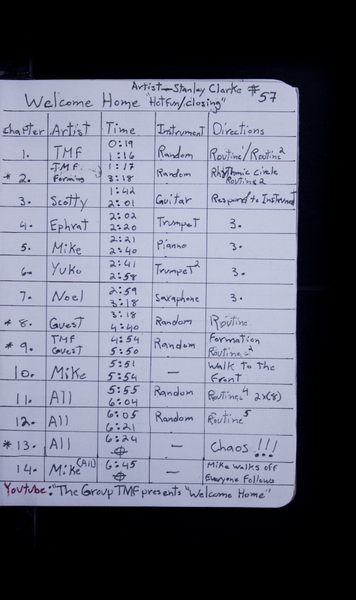 Artist - Stanley Clarke #57
Welcome Home "Hotfun/closing"
Chapter Artist Time Instrument Directions
1. TMF 0:19 1:16 Random Routine'/Routine2
* 2. TMF Forming 1:17 3:18 Random Rhythmic circle Routine 2
3. Scotty 1:42 2:01 Guitar Respond to Instrument
4. Ephrat 2:02 2:20 Trumpet 3.
5. Mike 2:21 2:40 Pianno 3.
6. Yuko 2:41 2:58 Trumpet2 3.
7. Noel 2:59 3:18 Saxaphone 3.
* 8. Guest 3:18 4:40 Random Routine
* 9. TMF Guest 4:54 5:50 Random Formation Routines2
10. Mike 5:51 5:54 — Walk to the Front
11. All 5:55 6:04 Random Routines4 2x(8)
12. All 6:05 6:21 Random Routine5
* 13. All 6:24 — Chaos !!!
14. Mike (All) 6:45 — Mike walks off Everyone Follows
Youtube: "The Group TMF presents "Welcome Home"